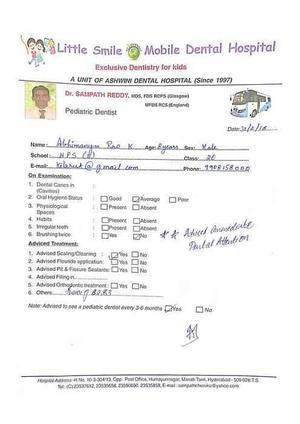 Little Smile Mobile Dental Hospital
Exclusive Dentistry for kids
A UNIT OF ASHWIN DENTAL HOSPITAL (Since 1997)
Dr. SAMPATH REDDY, MDS, FDS RCPS (Glasgow)
MFDS RCS (England)
Pediatric Dentist
Date:
Name: Abhimanyu Rao K Age: 8 years Sex: Male
School: HPS (R) Class: 2E
E-mail: @gmail.com Phone: 9908158000
On Examination:
1. Dental Caries in (Cavities)
2. Oral Hygiene Status : Good Average Poor
3. Physiological Spaces : Present Absent
4. Habits : Present Absent
5. Irregular teeth : Present Absent
6. Brushing/floss : Yes No
** Advised Immediate Dental Attention
Advised Treatment:
1. Advised Scaling/Cleaning : Yes No
2. Advised Flouride application: Yes No
3. Advised Pit & Fissure Sealants: Yes No
4. Advised Filing in
5. Advised Orthodontic treatment : Yes No
6. Others:
Note: Advised to see a pediatric dentist every 3-6 months Yes No
Hospital Address: H.No. 10-3-304/13, Opp. Post Office, Humayunnagar, Masab Tank, Hyderabad - 500 028.T.S.
Tel: (C) 23537632, 23535658, 23590690, 23535858, E-mail: